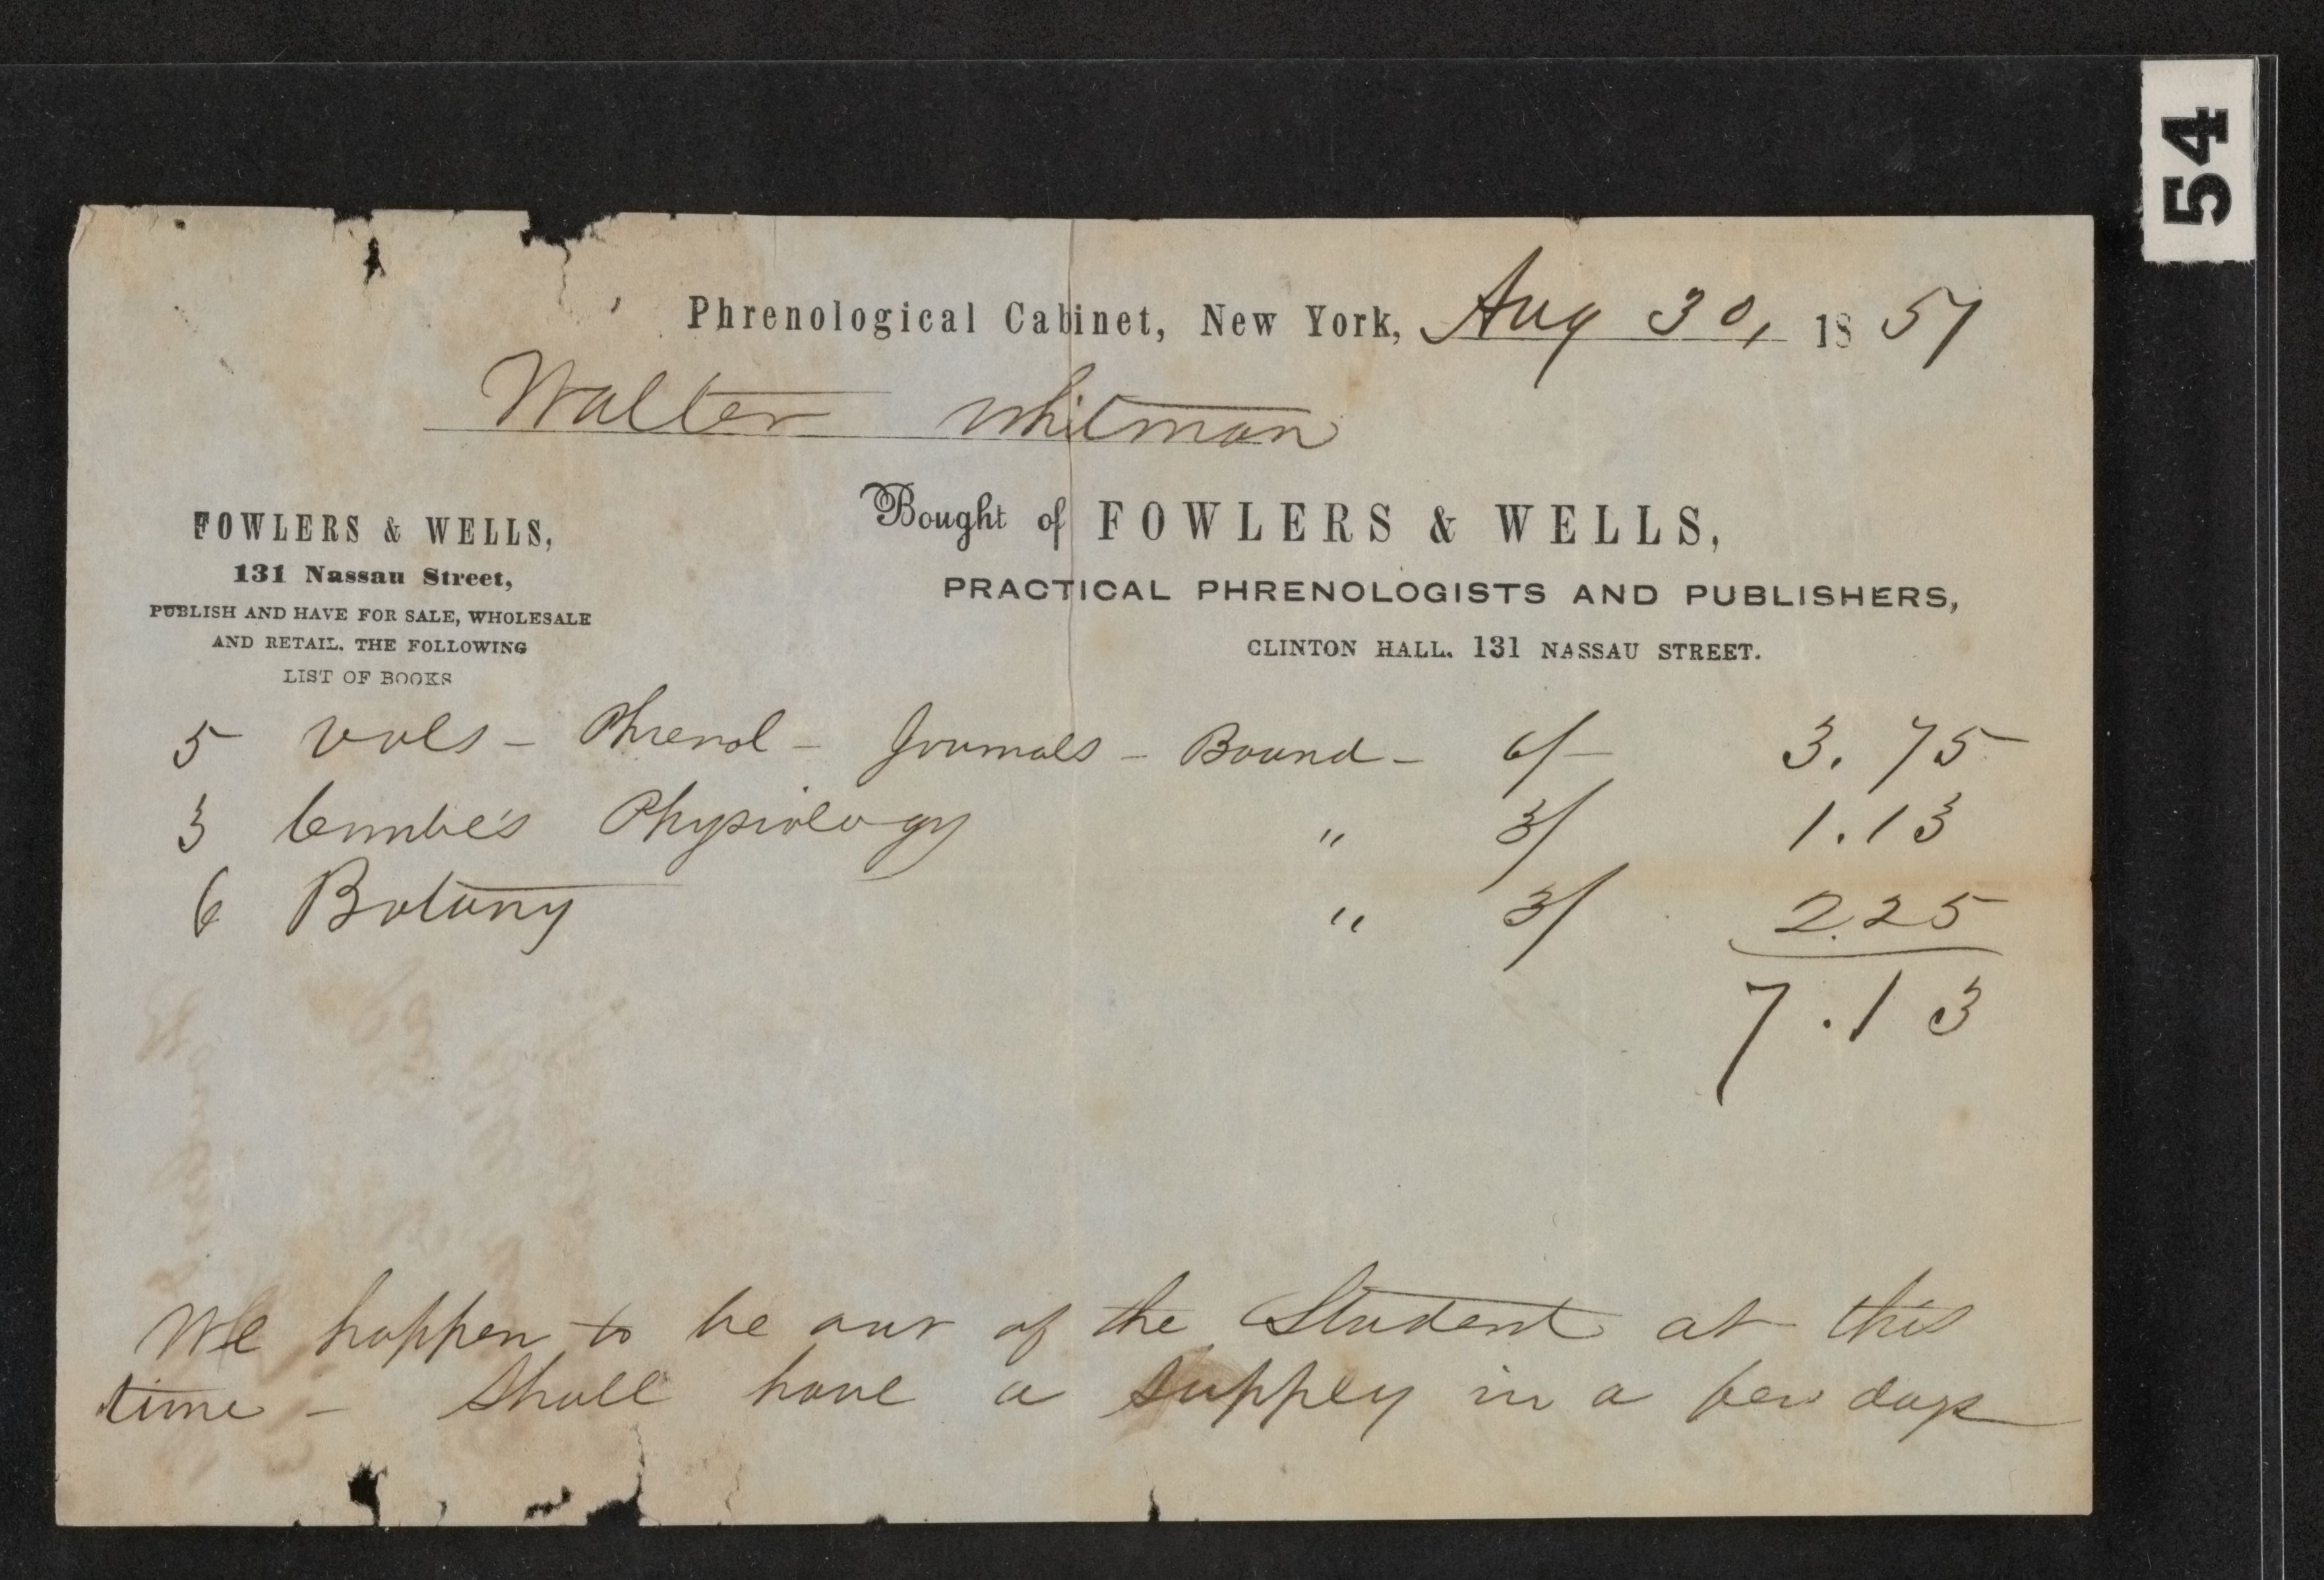 54
Phrenological Cabinet, New York, Aug 30, 1851
Walter Whitman
Bought of FOWLERS & WELLS,
PRACTICAL PHRENOLOGISTS AND PUBLISHERS,
CLINTON HALL. 131 NASSAU STREET.
FOWLERS & WELLS,
131 Nassau Street,
PUBLISH AND HAVE FOR SALE, WHOLESALE
AND RETAIL. THE FOLLOWING
LIST OF BOOKS
5 vols - Phrenol - Journals - Bound - 6/- 3.75
3 Combe's Physiology " 3/ 1.13
6 Botany " 3/ 2.25
7.13
We happen to be out of the Student at this
time - Shall have a supply in a few days